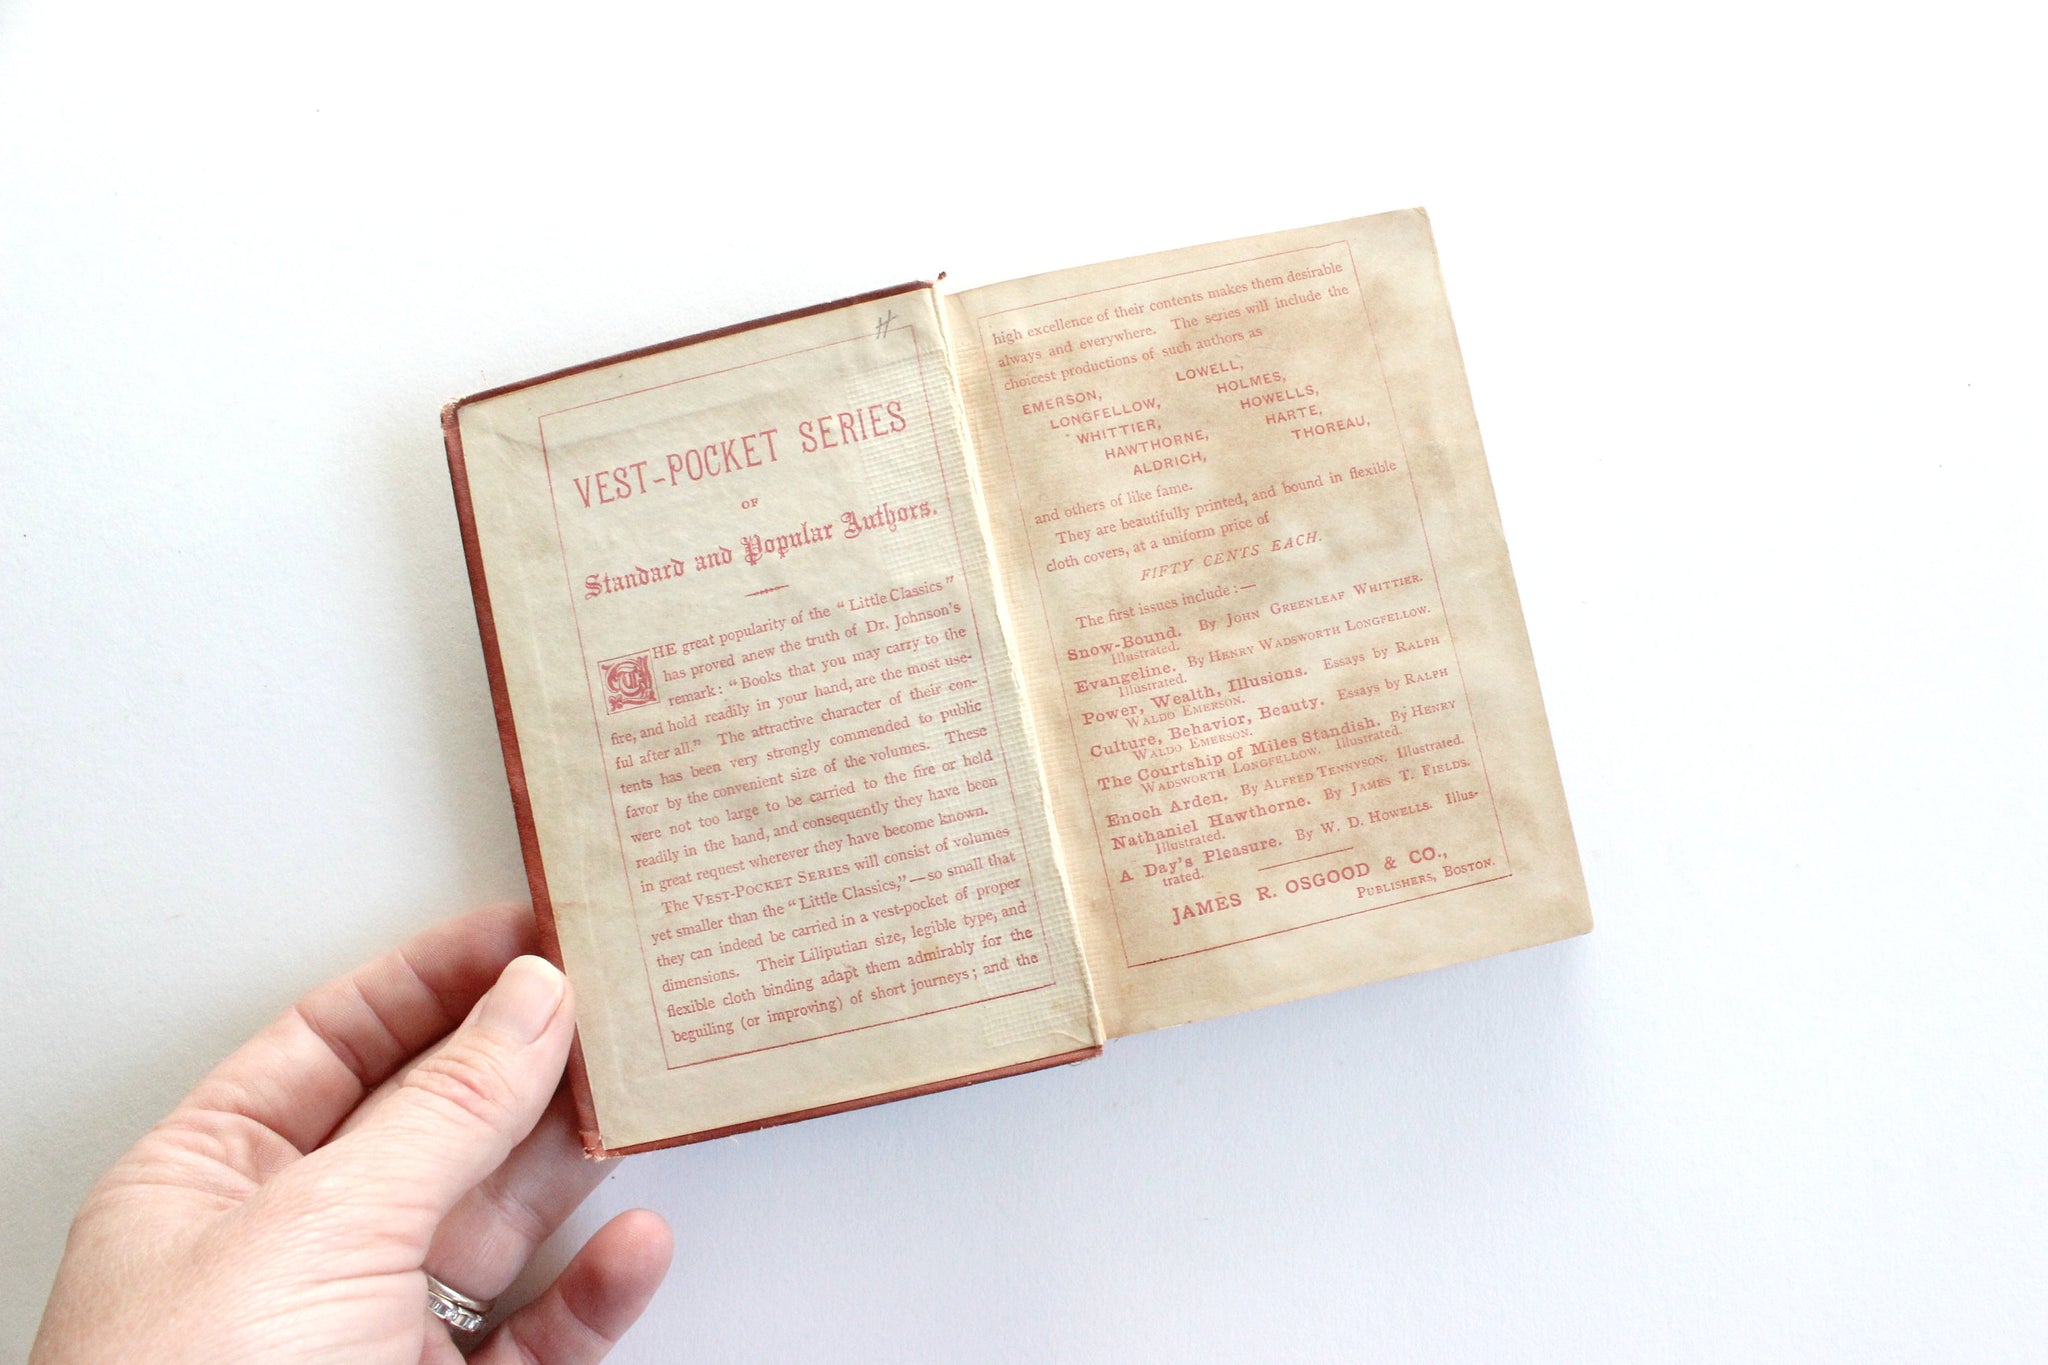 #
VEST-POCKET SERIES
OF
Standard and Popular Authors.
THE great popularity of the "Little Classics"
has proved anew the truth of Dr. Johnson's
remark: "Books that you may carry to the
fire, and hold readily in your hand, are the most use-
ful after all." The attractive character of their con-
tents has been very strongly commended to public
favor by the convenient size of the volumes. These
were not too large to be carried to the fire or held
readily in the hand, and consequently they have been
in great request wherever they have become known.
The VEST-POCKET SERIES will consist of volumes
yet smaller than the "Little Classics,"—so small that
they can indeed be carried in a vest-pocket of proper
dimensions. Their Liliputian size, legible type, and
flexible cloth binding adapt them admirably for the
beguiling (or improving) of short journeys; and the
high excellence of their contents makes them desirable
always and everywhere. The series will include the
choicest productions of such authors as
EMERSON, LOWELL,
LONGFELLOW, HOLMES,
WHITTIER, HOWELLS,
HAWTHORNE, HARTE,
ALDRICH, THOREAU,
and others of like fame.
They are beautifully printed, and bound in flexible
cloth covers, at a uniform price of
FIFTY CENTS EACH.
The first issues include:—
Snow-Bound. By JOHN GREENLEAF WHITTIER.
Illustrated.
Evangeline. By HENRY WADSWORTH LONGFELLOW.
Illustrated.
Power, Wealth, Illusions. Essays by RALPH
WALDO EMERSON.
Culture, Behavior, Beauty. Essays by RALPH
WALDO EMERSON.
The Courtship of Miles Standish. By HENRY
WADSWORTH LONGFELLOW. Illustrated.
Enoch Arden. By ALFRED TENNYSON. Illustrated.
Nathaniel Hawthorne. By JAMES T. FIELDS.
Illustrated.
A Day's Pleasure. By W. D. HOWELLS. Illus-
trated.
JAMES R. OSGOOD & CO.,
PUBLISHERS, BOSTON.